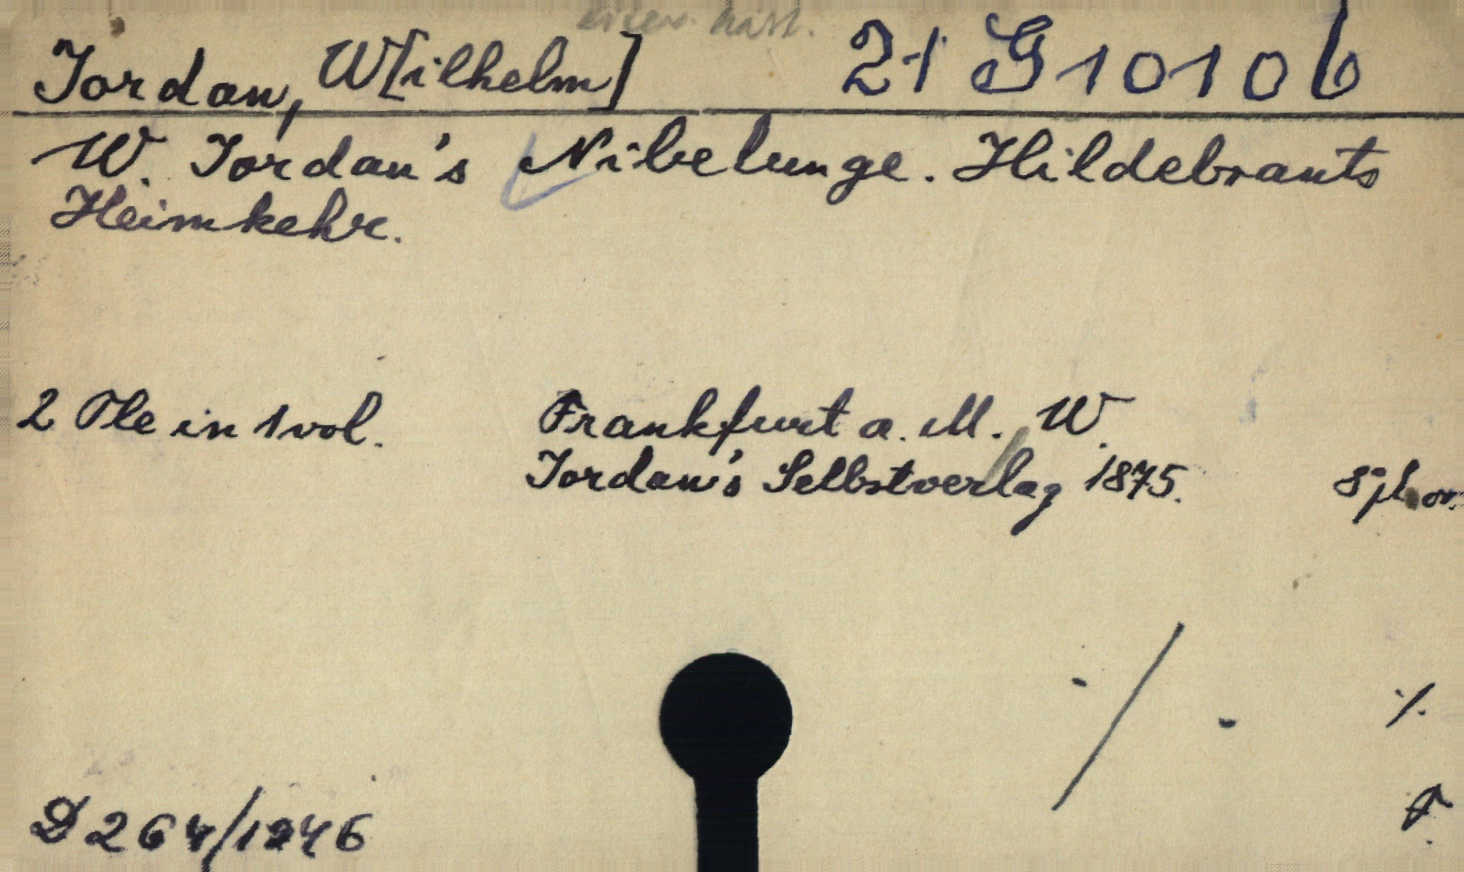 Jordan, W[ilhelm] 21 G 10106
W. Jordan's Nibelunge. Hildebrants
Heimkehr.
2 Tle in 1 vol. Frankfurt a. M. W.
Jordan's Selbstverlag 1875. 8
./.
D 264/1946